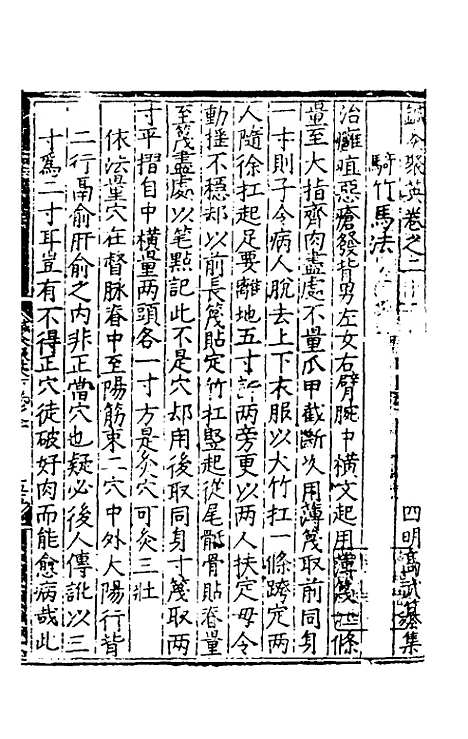 鍼灸聚英卷之二 四明高武纂集
騎竹馬法
治癰疽惡瘡發背男左女右臂腕中橫文起用薄篾一條
量至大指齊肉盡處不量爪甲截斷次用薄篾取前同身
一寸則子令病人脫去上下衣服以大竹扛一條跨定兩
人隨徐扛起足要離地五寸許兩旁更以兩人扶定毋令
動搖不穩却以前長篾貼定竹扛竪起從尾骶骨貼脊量
至篾盡處以笔點記此不是穴却用後取同身寸篾取兩
寸平摺自中橫量兩頭各一寸方是灸穴可灸三壯
依法量穴在督脉脊中至陽筋束二穴中外太陽行背
二行鬲俞肝俞之内非正當穴也疑必後人傳訛以三
寸爲二寸耳豈有不得正穴徒破好肉而能愈病哉此